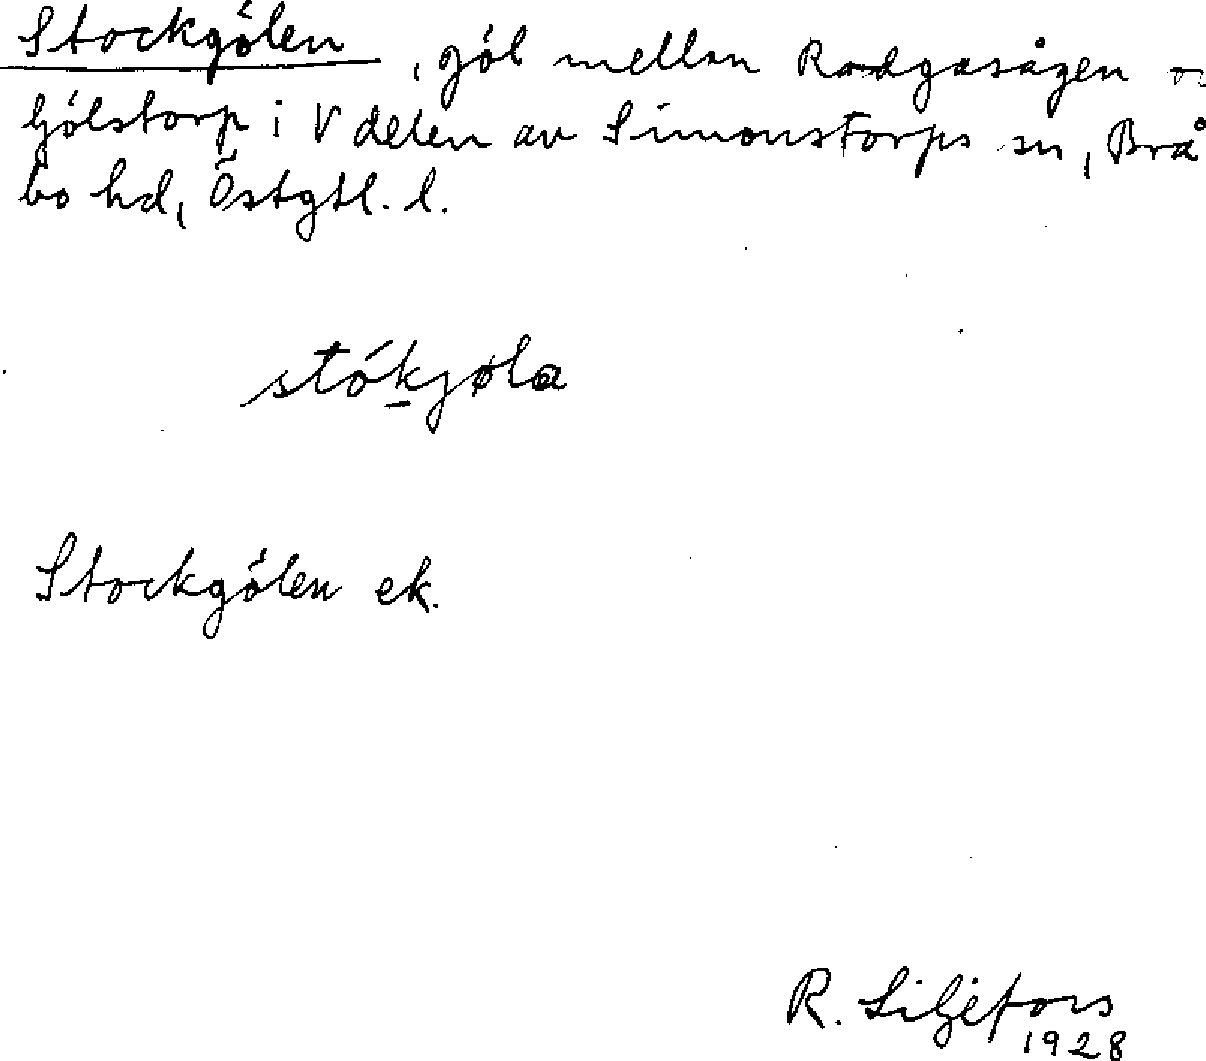 Stockgölen, göl mellan Rodgasågen o.
Gölstorp i V delen av Simonstorps sn, Brå
bo hd, Östgtl. l.
stókjøla
Stockgölen ek.
R. Liljefors
1928